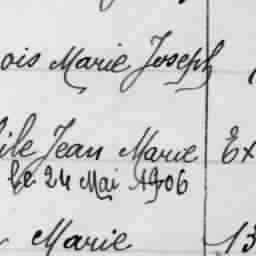 ois Marie Joseph
ile Jean Marie Ex
le 24 Mai 1906
Marie 13